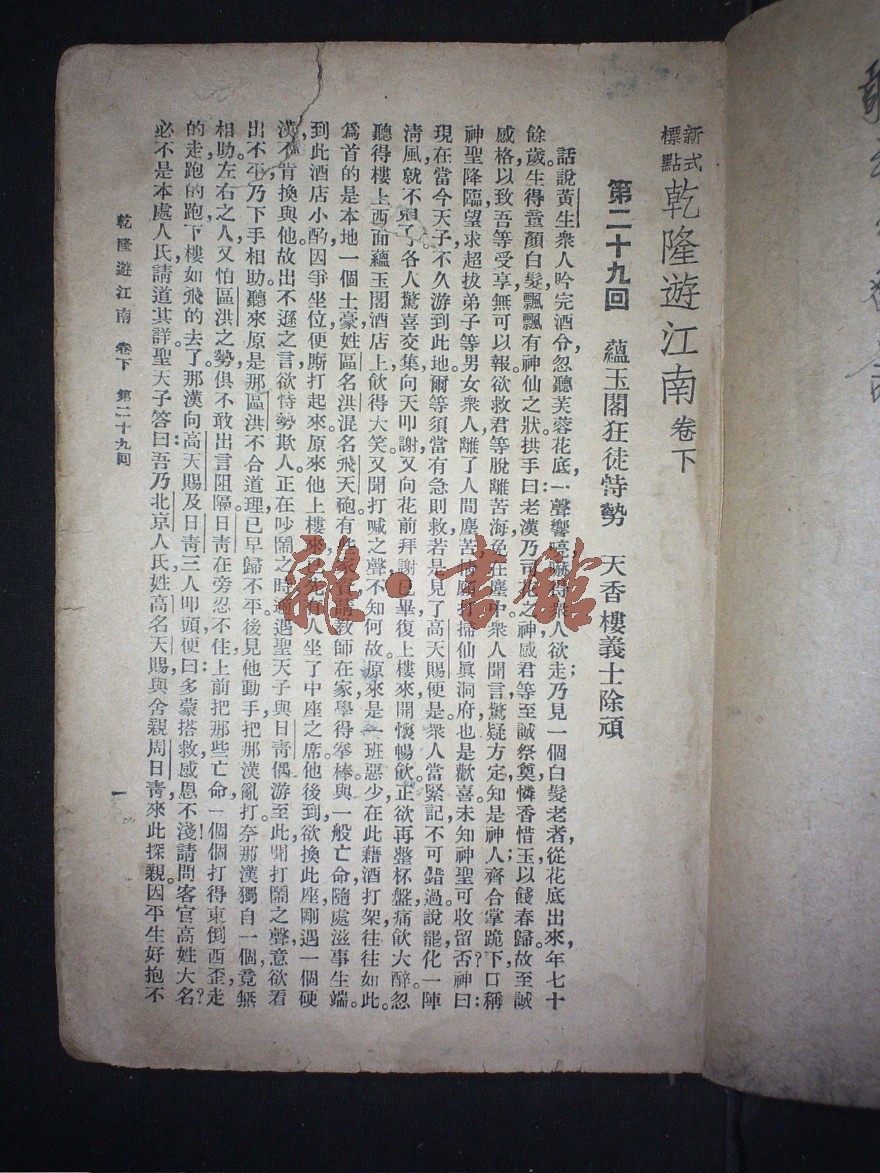 新式標點 乾隆遊江南 卷下
第二十九回 蘊玉閣狂徒恃勢 天香樓義士除頑
話說黃生衆人吟完酒令,忽聽芙蓉花底,一聲響喨,嚇得衆人欲走;乃見一個白髮老者,從花底出來,年七十
餘歲,生得童顏白髮,飄飄有神仙之狀,拱手曰:老漢乃司花之神,感君等至誠祭奠,憐香惜玉,以餞春歸。故至誠
感格,以致吾等受享,無可以報,欲救君等脫離苦海,免在塵中。衆人聞言,驚疑方定,知是神人,齊合掌跪下,口稱
神聖降臨,望求超拔弟子等男女衆人,離了人間塵苦,情願打掃仙眞洞府,也是歡喜。未知神聖可收留否?神曰:
現在當今天子,不久游到此地,爾等須當有急則救,若是見了高天賜便是。衆人當緊記,不可錯過,說罷,化一陣
淸風就不見了。各人驚喜交集,向天叩謝,又向花前拜謝已畢,復上樓來,開懷暢飮,正欲再整杯盤,痛飮大醉。忽
聽得樓上西面蘊玉閣酒店上,飮得大笑,又聞打喊之聲,不知何故。原來是一班惡少,在此藉酒打架,往往如此。
爲首的是本地一個土豪,姓區名洪,混名飛天砲,有些家資,請教師在家,學得拳棒,與一般亡命,隨處滋事生端。
到此酒店小酌,因爭坐位,便厮打起來。原來他上樓來,已先有人坐了中座之席。他後到,欲換此座,剛遇一個硬
漢,不肯換與他,故出不遜之言,欲恃勢欺人。正在吵鬧之時,適遇聖天子與日靑偶游至此,聞打鬧之聲,意欲看
出不平,乃下手相助,聽來原是那區洪不合道理,已早歸不平。後見他動手,把那漢亂打。奈那漢獨自一個,竟無
相助,左右之人,又怕區洪之勢,俱不敢出言阻隔。日靑在旁忍不住,上前把那些亡命,一個個打得東倒西歪,走
的走,跑的跑,下樓如飛的去了。那漢向高天賜及日靑三人叩頭,便曰:多蒙搭救,感恩不淺!請問客官高姓大名?
必不是本處人氏,請道其詳。聖天子答曰:吾乃北京人氏,姓高名天賜,與舍親周日靑,來此探親,因平生好抱不
乾隆遊江南 卷下 第二十九回 一
雜·書館